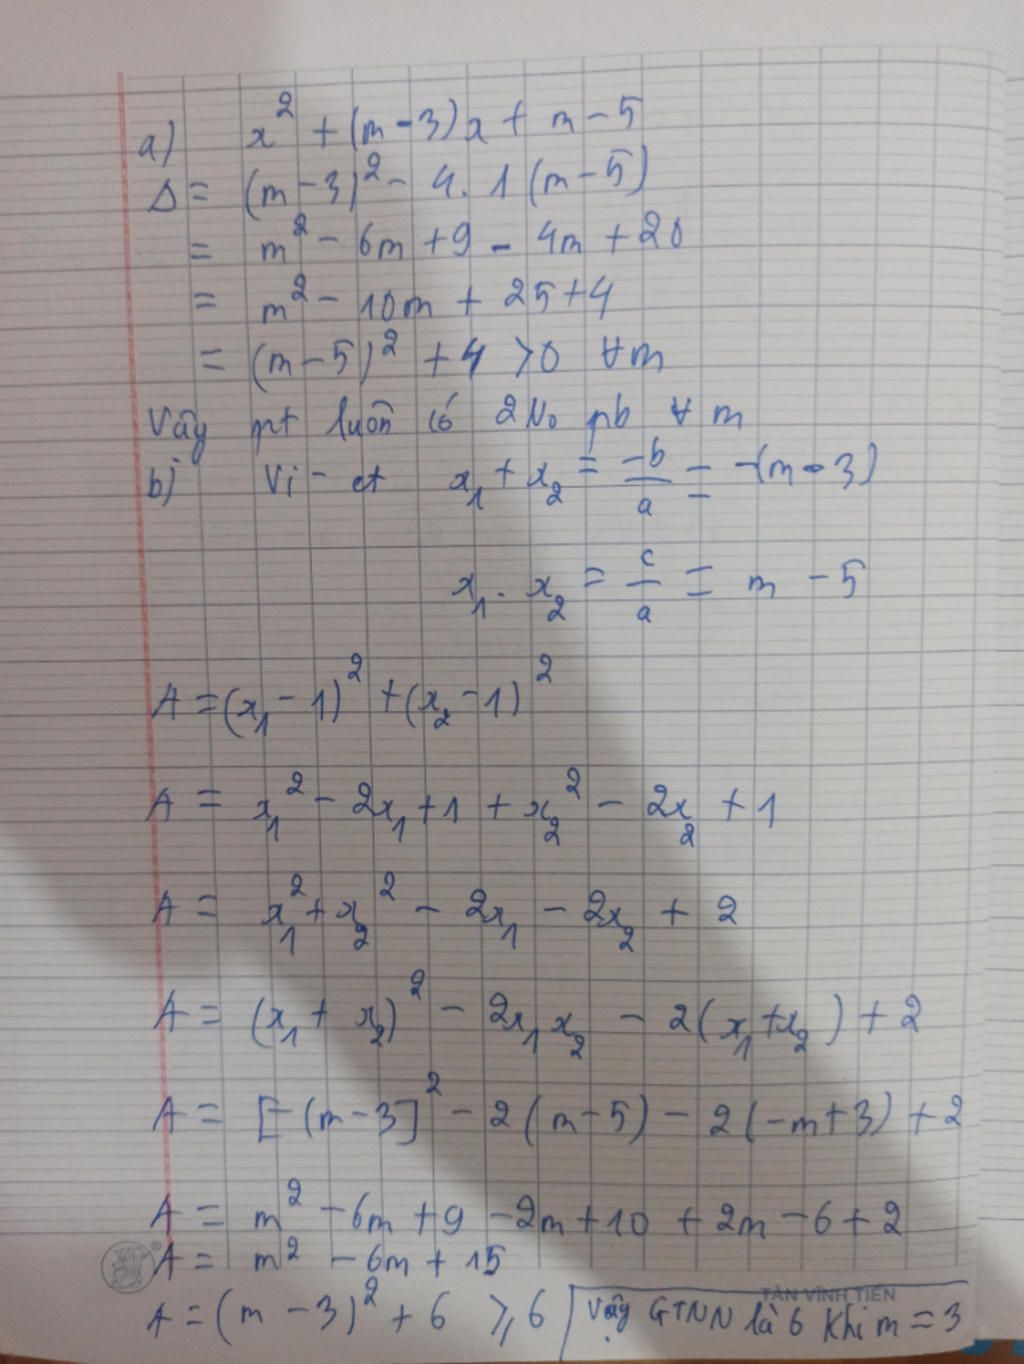 a) x² + (m - 3)x + m - 5
Δ = (m - 3)² - 4. 1 (m - 5)
= m² - 6m + 9 - 4m + 20
= m² - 10m + 25 + 4
= (m - 5)² + 4 > 0 ∀m
Vậy pt luôn có 2 No pb ∀ m
b) Vi - et x₁ + x₂ = -b/a = -(m - 3)
x₁ . x₂ = c/a = m - 5
A = (x₁ - 1)² + (x₂ - 1)²
A = x₁² - 2x₁ + 1 + x₂² - 2x₂ + 1
A = x₁² + x₂² - 2x₁ - 2x₂ + 2
A = (x₁ + x₂)² - 2x₁ x₂ - 2(x₁ + x₂) + 2
A = [-(m - 3]² - 2(m - 5) - 2(-m + 3) + 2
A = m² - 6m + 9 - 2m + 10 + 2m - 6 + 2
A = m² - 6m + 15
TÂN VĨNH TIẾN
A = (m - 3)² + 6 ⩾ 6 Vậy GTNN là 6 khi m = 3